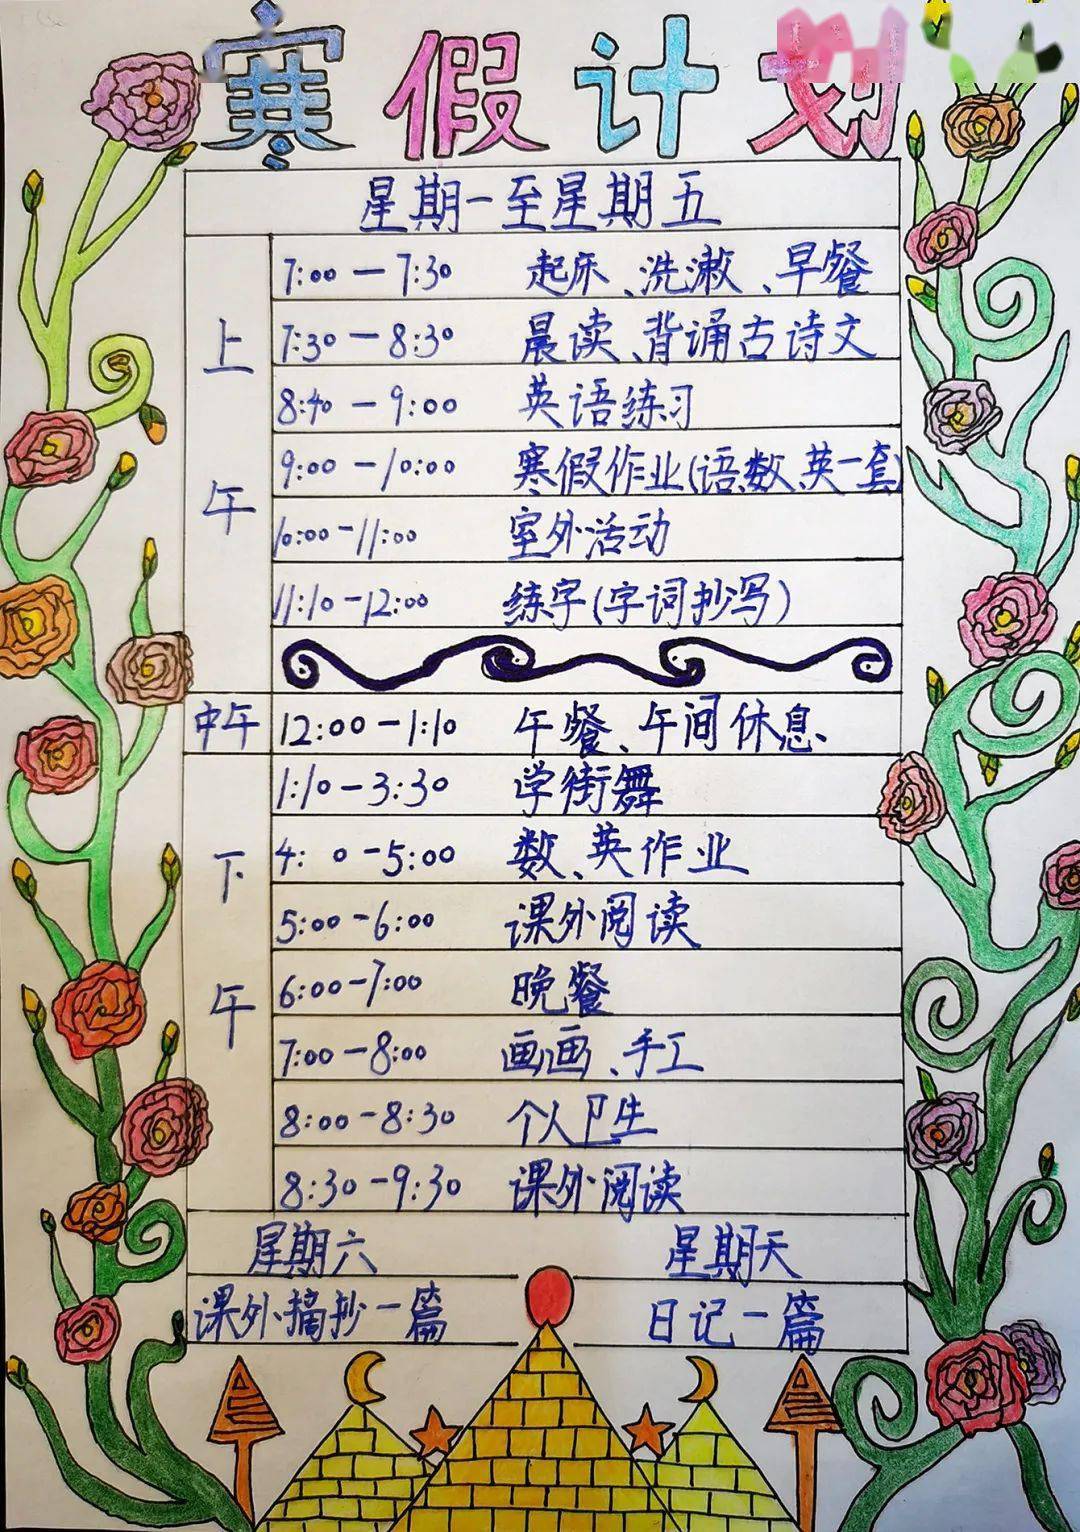 寒假计划
星期一至星期五
上午
7:00—7:30 起床、洗漱、早餐
7:30—8:30 晨读、背诵古诗文
8:40—9:00 英语练习
9:00—10:00 寒假作业(语、数、英一套)
10:00-11:00 室外活动
11:10-12:00 练字(字词抄写)
中午
12:00-1:10 午餐、午间休息
下午
1:10-3:30 学街舞
4: 0-5:00 数、英作业
5:00-6:00 课外阅读
6:00-7:00 晚餐
7:00—8:00 画画、手工
8:00-8:30 个人卫生
8:30-9:30 课外阅读
星期六 星期天
课外摘抄一篇 日记一篇